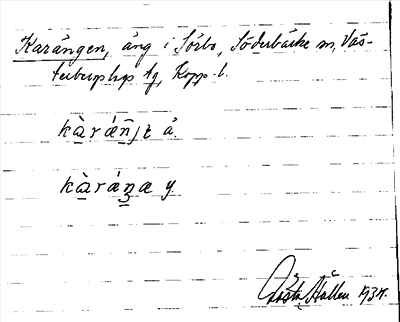 Karängen, äng i Sörbo, Söderbärke sn, Väs-
terbergslags tg, Kopp. l.
kàráńjɛ ä.
kàránæ y.
Gösta Hållen 1934.